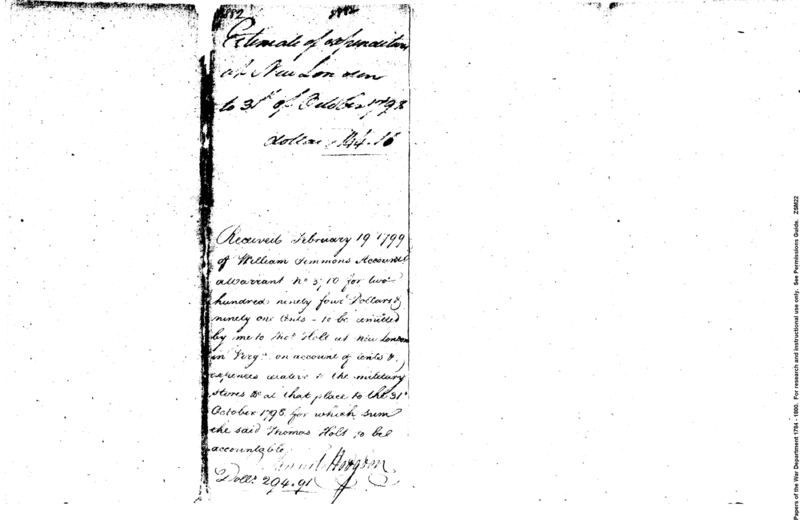 3882 3882
Estimate of expenditures
at New London
to 31st of October 1798
dollars 144.16
Received February 19 1799
of William Simmons Accountt
a Warrant No 3,10 for two
hundred ninety four Dollars &
ninety one Cents - to be remitted
by me to Thos Holt at New London
in Virga on account of rents &
expences relative to the military
stores &c at that place to the 31st
October 1798 for which sum
the said Thomas Holt to be
accountable
Saml Hodgdon
Dolls 294.91
Papers of the War Department 1784 - 1800. For research and instructional use only. See Permissions Guide. ZSM22